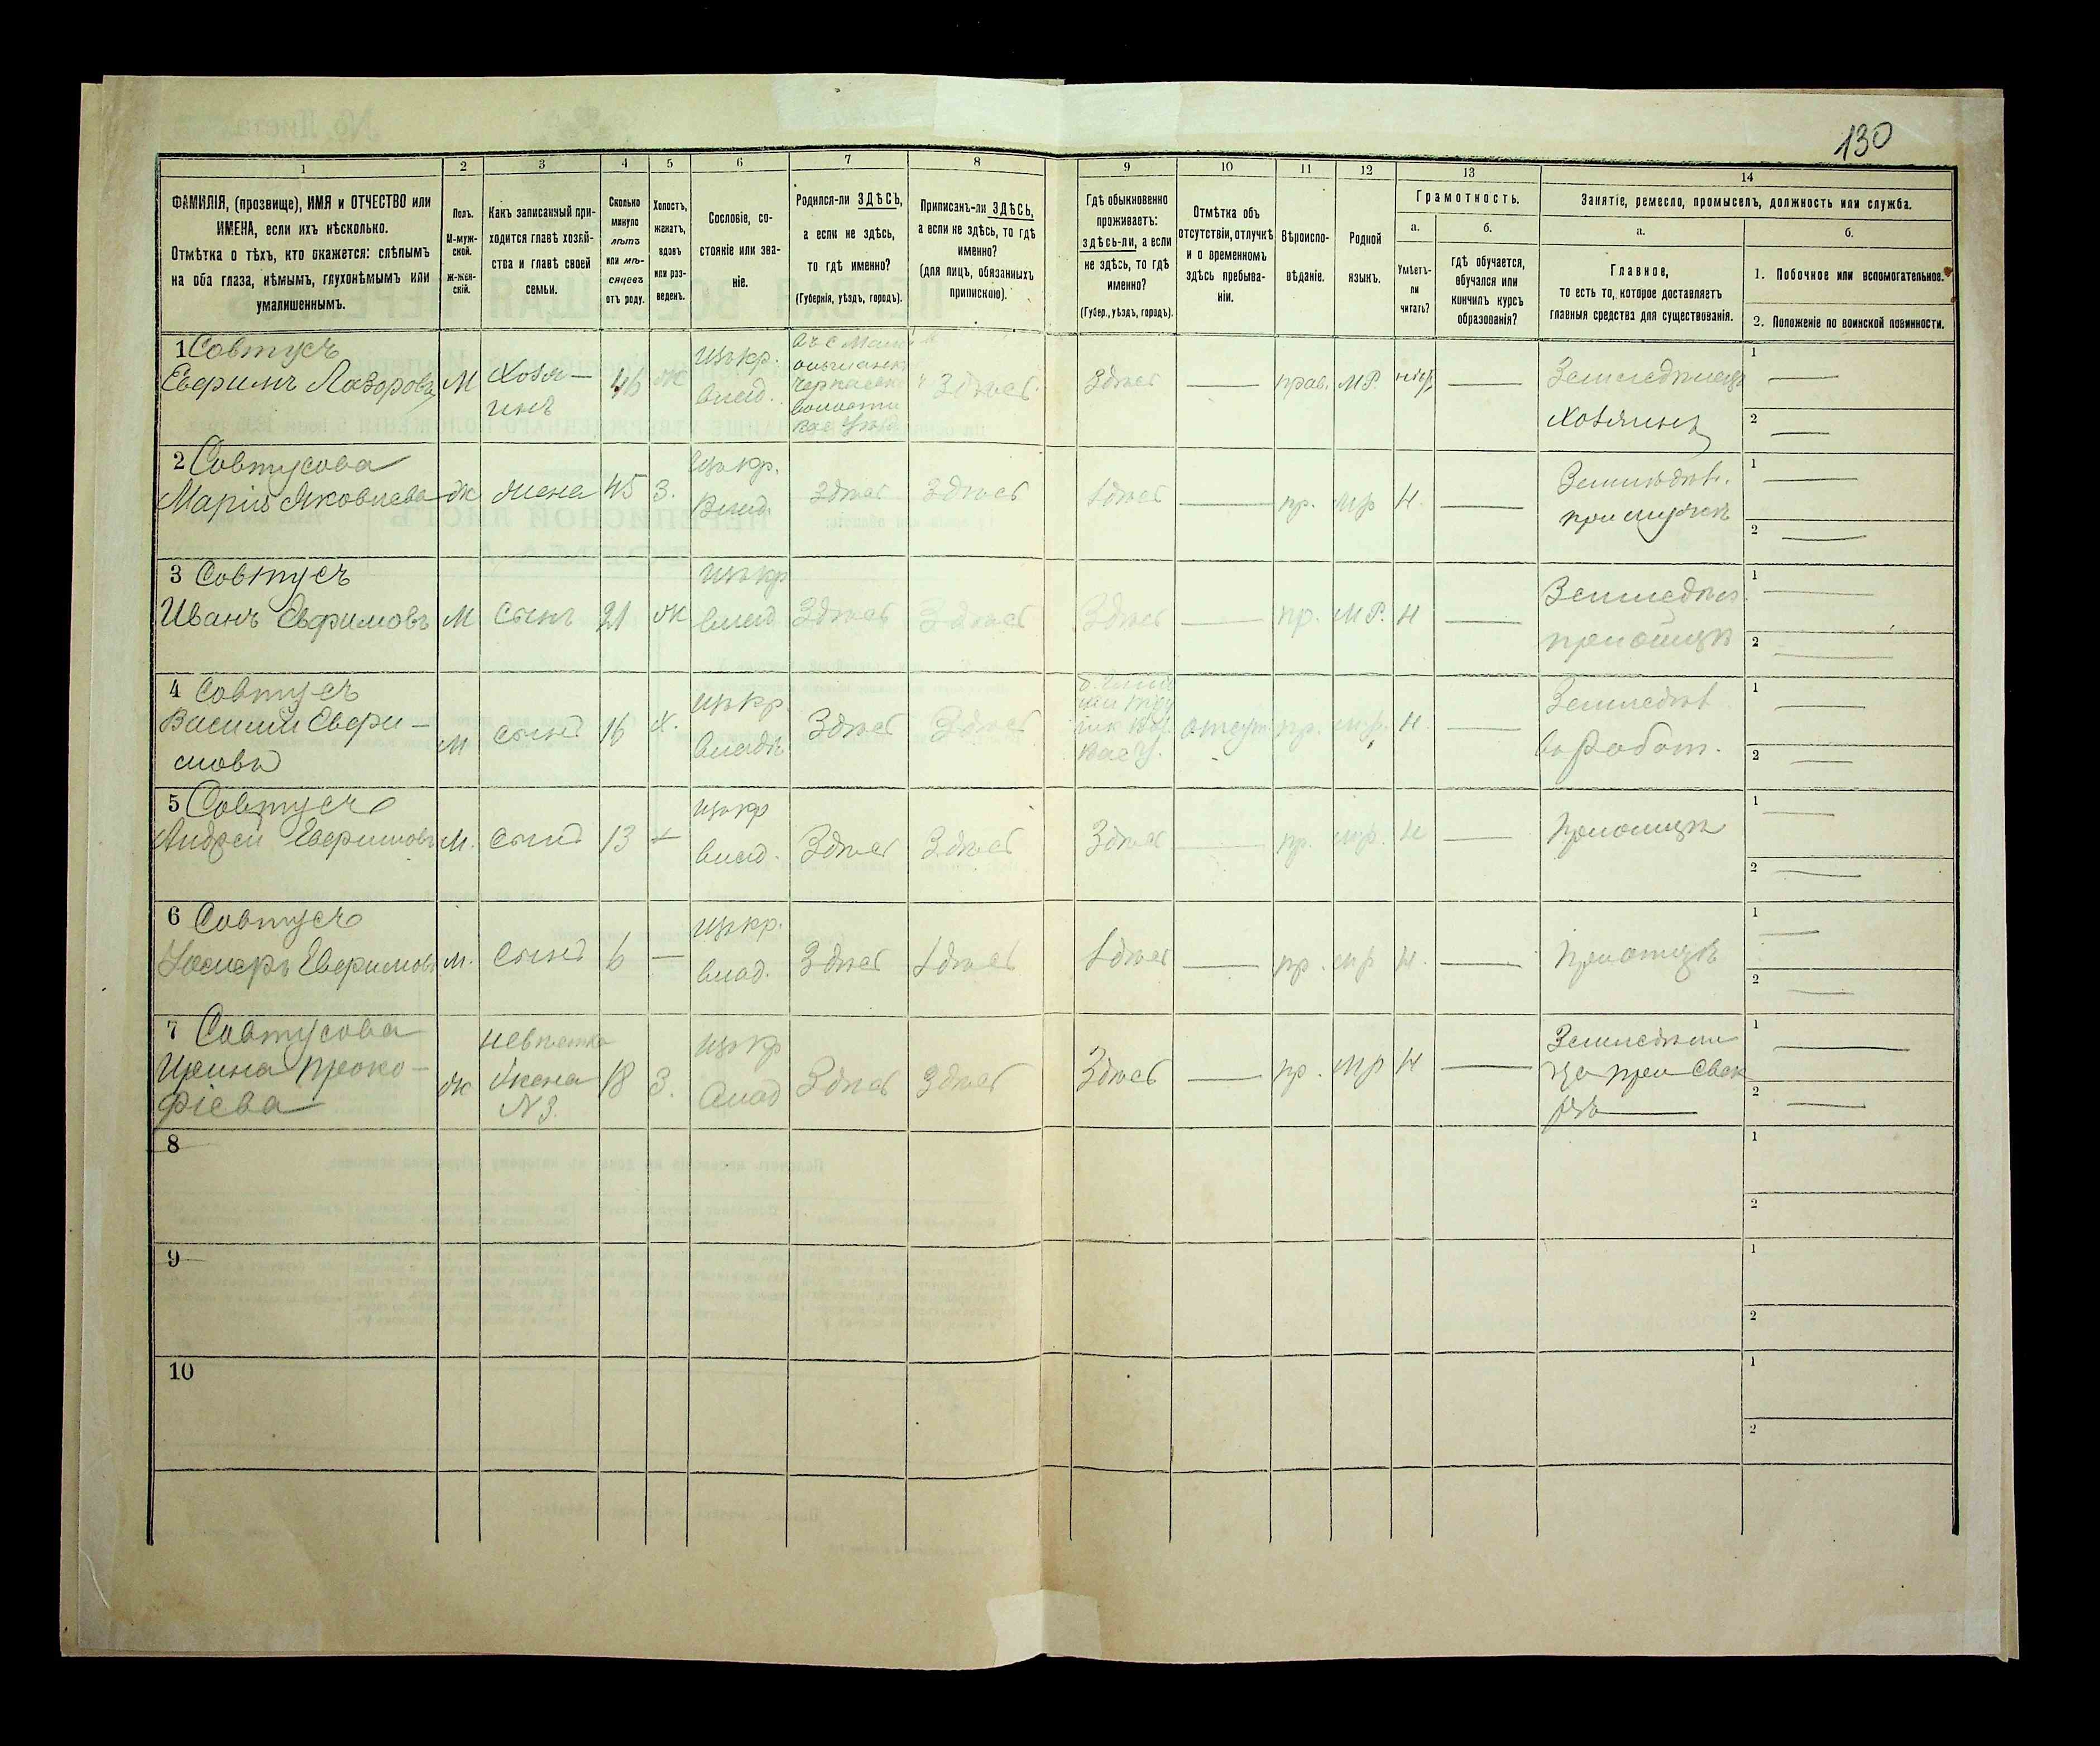 130
1 2 3 4 5 6 7 8 9 10 11 12 13 14
ФАМИЛІЯ, (прозвище), ИМЯ и ОТЧЕСТВО или
ИМЕНА, если ихъ нѣсколько.
Отмѣтка о тѣхъ, кто окажется: слѣпымъ
на оба глаза, нѣмымъ, глухонѣмымъ или
умалишеннымъ.
Полъ.
М-муж-
ской.
Ж-жен-
скій.
Какъ записанный при-
ходится главѣ хозяй-
ства и главѣ своей
семьи.
Сколько
минуло
лѣтъ
или мѣ-
сяцевъ
отъ роду.
Холостъ,
женатъ,
вдовъ
или раз-
веденъ.
Сословіе, со-
стояніе или зва-
ніе.
Родился-ли ЗДѢСЬ,
а если не здѣсь,
то гдѣ именно?
(Губернія, уѣздъ, городъ).
Приписанъ-ли ЗДѢСЬ,
а если не здѣсь, то гдѣ
именно?
(для лицъ, обязанныхъ
припискою).
Гдѣ обыкновенно
проживаетъ:
здѣсь-ли, а если
не здѣсь, то гдѣ
именно?
(Губер., уѣздъ, городъ).
Отмѣтка объ
отсутствіи, отлучкѣ
и о временномъ
здѣсь пребыва-
ніи.
Вѣроиспо-
вѣданіе.
Родной
языкъ.
Грамотность.
а.
Умѣетъ-
ли
читать?
б.
гдѣ обучается,
обучался или
кончилъ курсъ
образованія?
Занятіе, ремесло, промыселъ, должность или служба.
а.
Главное,
то есть то, которое доставляетъ
главныя средства для существованія.
б.
1. Побочное или вспомогательное.
2. Положеніе по воинской повинности.
1 Совтусъ
Евфимъ Лазоровъ М Хозя-
инъ 46 Ж щѣ кр.
влад.
Черкасск
волости
Здѣсь Здѣсь — прав. М.Р. — Земледѣлецъ
хозяинъ
1 —
2 —
2 Совтусова
Марія Яковлева Ж жена 45 З. кр.
влад. Здѣсь Здѣсь Здѣсь — пр. мр Н. — Земледѣл.
при мужѣ
1 —
2 —
3 Совтусъ
Иванъ Евфимовъ М сынъ 21 Ж кр
влад Здѣсь Здѣсь Здѣсь — пр. М.Р. Н — Земледѣл.
при отцѣ
1 —
2 —
4 Совтусъ
Василій Евфи-
мовъ М сынъ 16 Х. кр.
владѣ Здѣсь Здѣсь отсут. пр. м.р. Н. — Земледѣл
въ работ.
1 —
2 —
5 Совтусъ
Андрей Евфимовъ М. сынъ 13 кр
влад. Здѣсь Здѣсь Здѣсь — пр. мр. Н — При отцѣ
1 —
2 —
6 Совтусъ
Евфимовъ М. сынъ 6 — кр.
влад. Здѣсь Здѣсь Здѣсь — пр. мр Н. — При отцѣ
1 —
2 —
7 Совтусова
Ирина Проко-
фіева Ж невѣстка
жена
N 3. 18 З. кр
влад Здѣсь Здѣсь Здѣсь — пр. мр Н —
при Свек
рѣ —
1 —
2 —
8
1
2
9
1
2
10
1
2